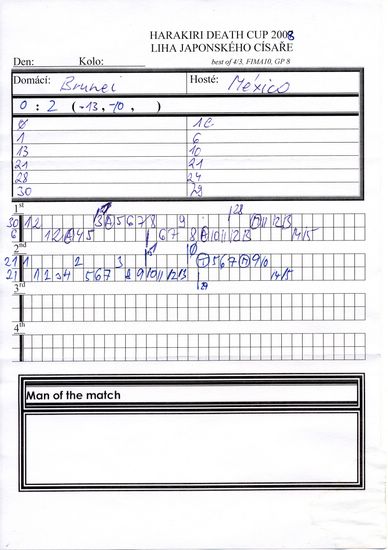 HARAKIRI DEATH CUP 2008
LIHA JAPONSKÉHO CÍSAŘE
Den: Kolo: best of 4/3, FIMA10, GP 8
Domácí: Brunei Hosté: México
0 : 2 ( -13, -10, )
1 6
13 10
21 21
28 24
30 29
1st
30 1 2 3 4 5 6 7 8 9 10 11 12 13
6 1 2 3 4 5 6 7 8 9 10 11 12 13 14 15
2nd
21 1 2 3 4 5 6 7 8 9 10
21 1 2 3 4 5 6 7 8 9 10 11 12 13 14 15
3rd
4th
Man of the match